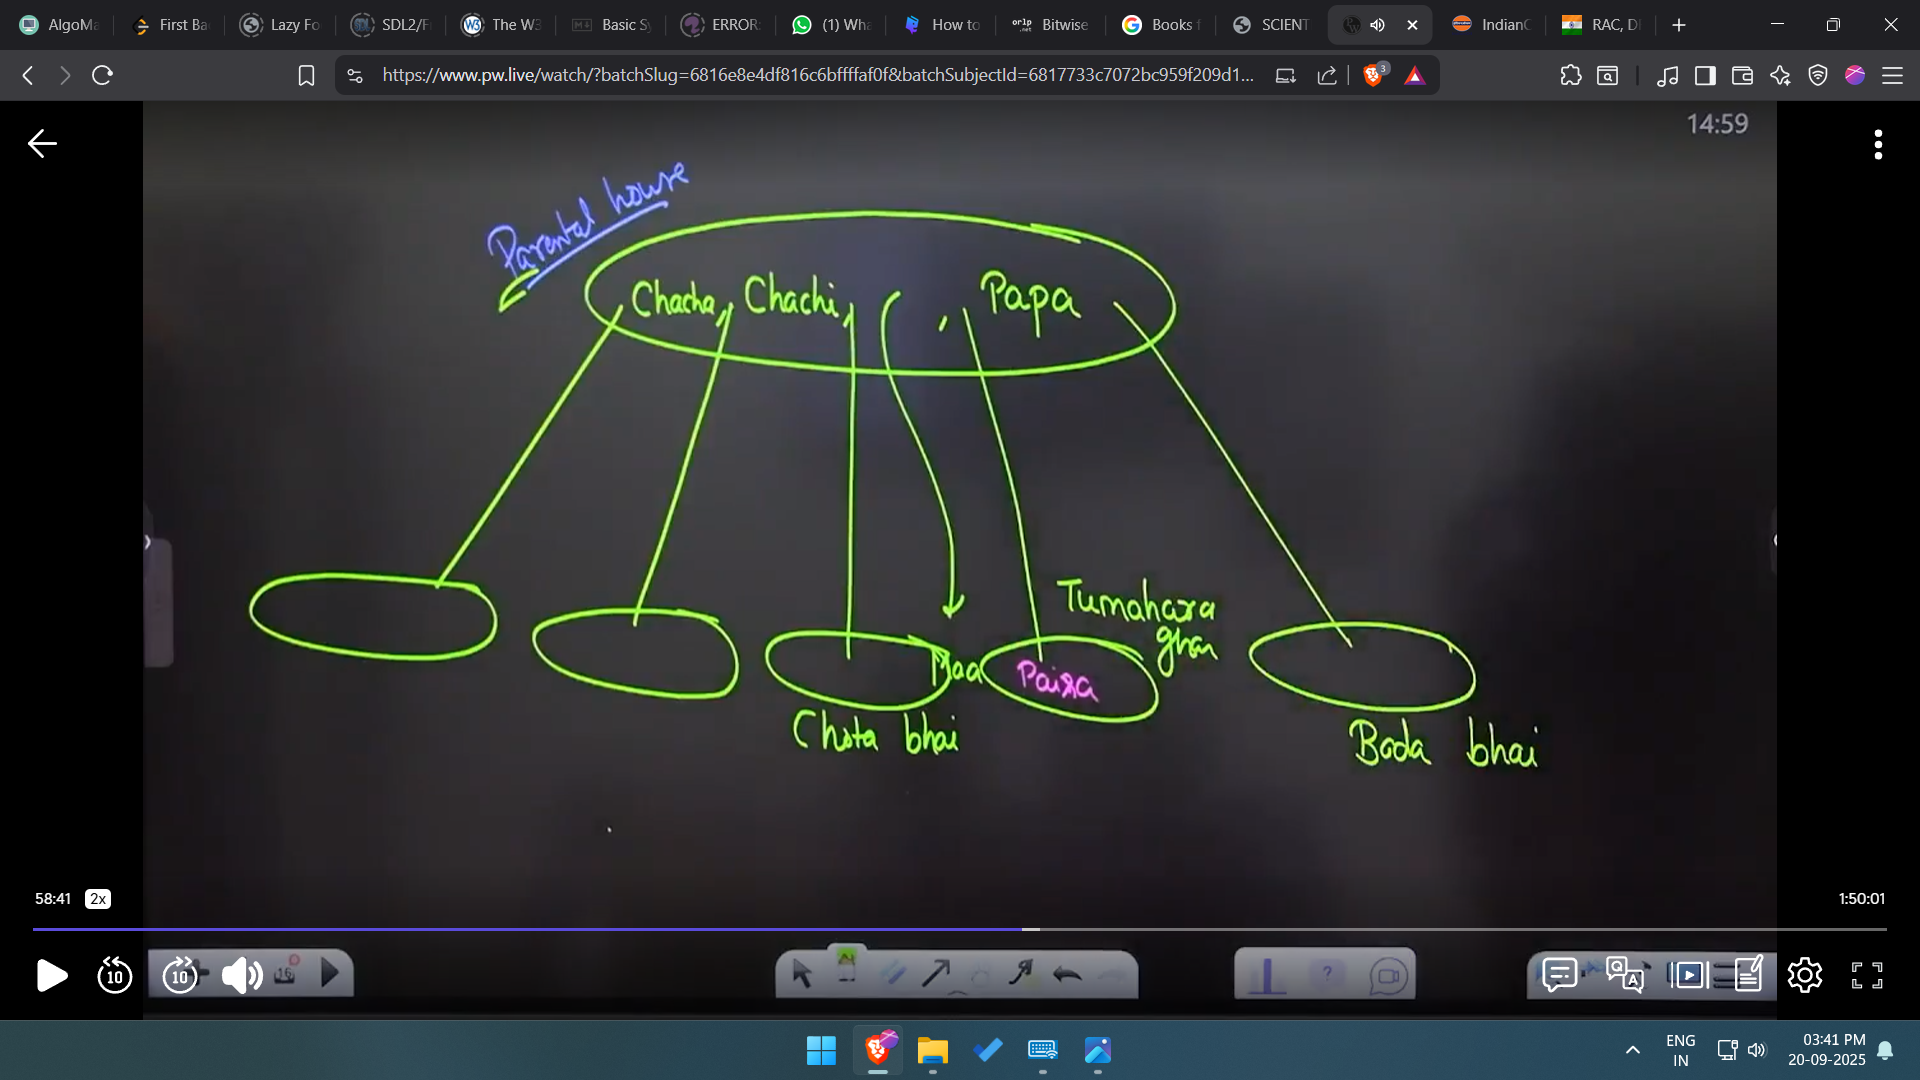 AlgoMa
First Ba
Lazy Fo
SDL2/F
The W3
Basic Sy
ERROR:
(1) Wha
How to
Bitwise
Books f
SCIENT
IndianO
RAC, D
https://www.pw.live/watch/?batchSlug=6816e8e4df816c6bffffaf0f&batchSubjectId=6817733c7072bc959f209d1...
3
14:59
Parental house
Chacha, Chachi, , Papa
Tumahara
ghar
Maa
Paisa
Chota bhai
Bada bhai
58:41 2x
1:50:01
10
10
16
?
Q A
ENG
IN
03:41 PM
20-09-2025